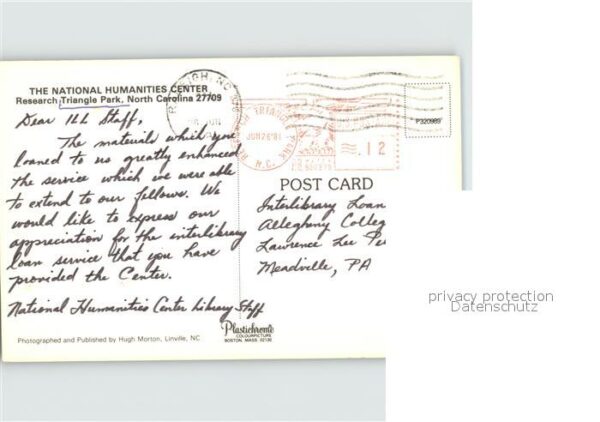 THE NATIONAL HUMANITIES CENTER
Research Triangle Park, North Carolina 27709
Dear ILL Staff,
The materials which you
loaned to us greatly enhanced
the service which we were able
to extend to our fellows. We
would like to express our
appreciation for the interlibrary
loan service that you have
provided the Center.
National Humanities Center Library Staff
Photographed and Published by Hugh Morton, Linville, NC
Plastichrome
COLOURPICTURE
BOSTON, MASS 02130
RALEIGH, NC
JUN
TRIANGLE PARK
JUN26'81
N.C.
.12
P320989
POST CARD
Interlibrary Loan
Allegheny Colleg
Lawrence Lee Pe
Meadville, PA
privacy protection
Datenschutz